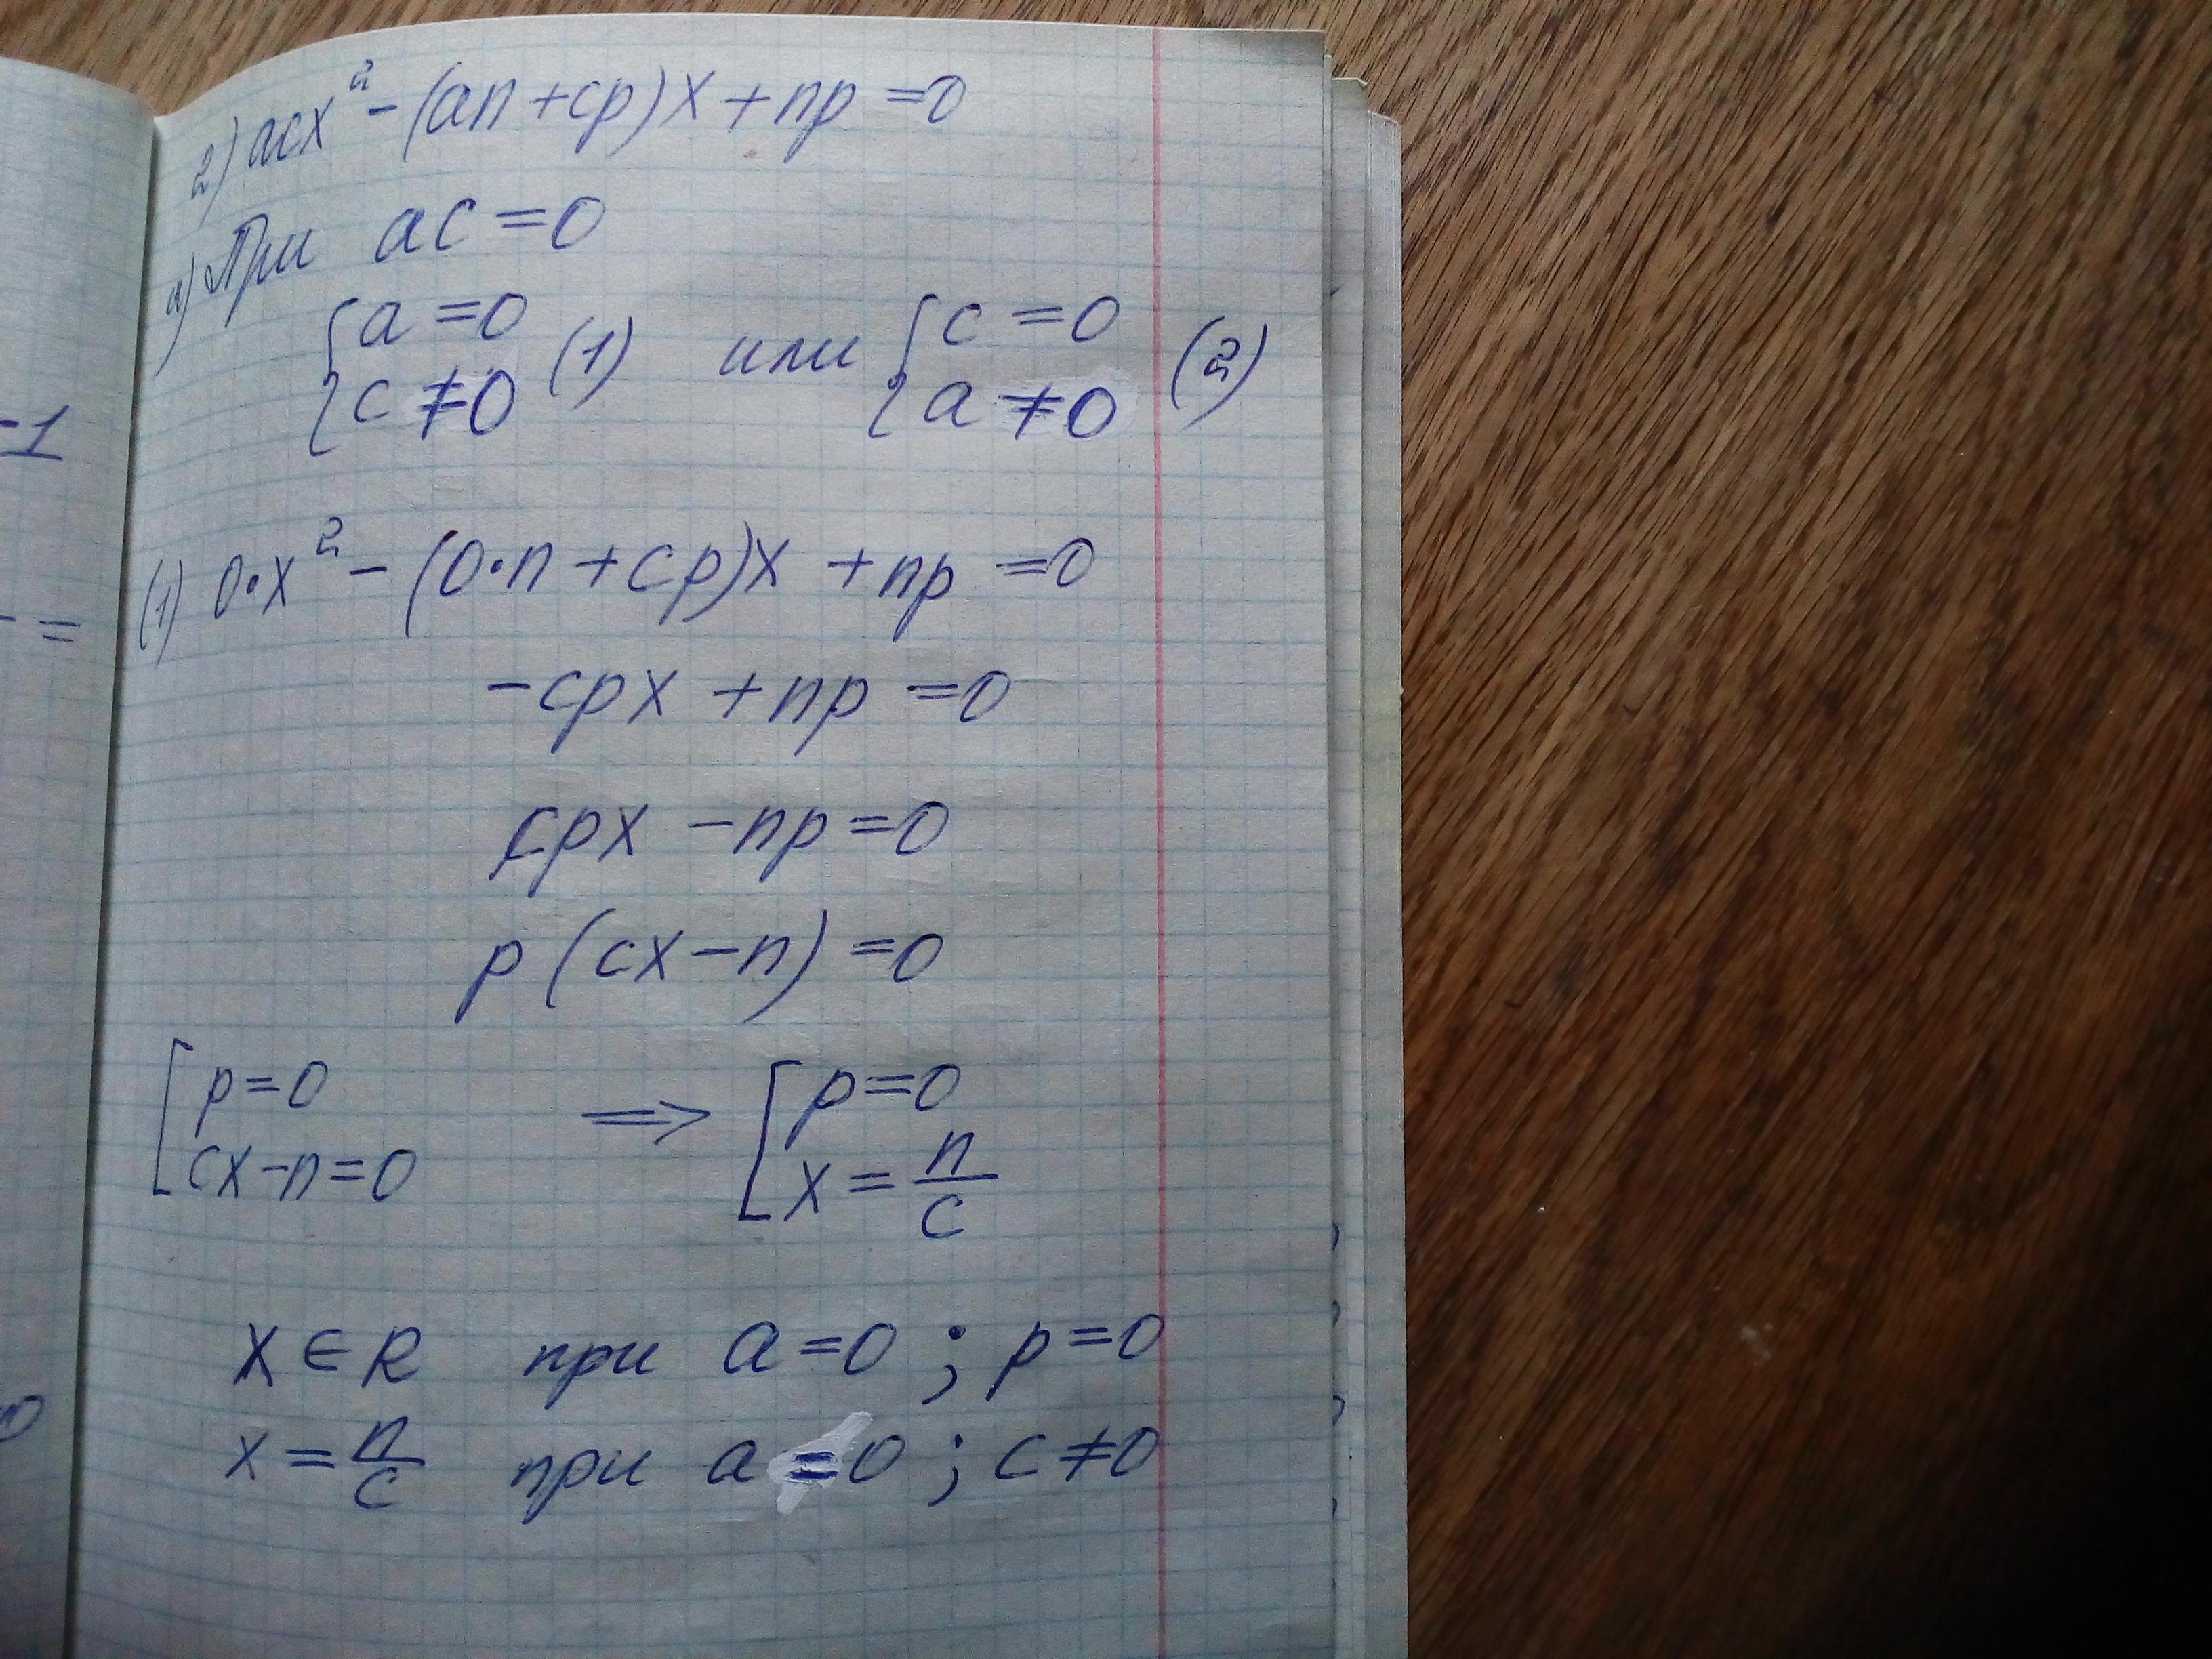 2) acx² - (an + cp)x + np = 0
а) При ac = 0
{a = 0 {c = 0
{c ≠ 0 (1) или {a ≠ 0 (2)
(1) 0·x² - (0·n + cp)x + np = 0
-cpx + np = 0
cpx - np = 0
p(cx - n) = 0
[p = 0 ⟹ [p = 0
[cx - n = 0 [x = n/c
x ∈ R при a = 0 ; p = 0
x = n/c при a = 0 ; c ≠ 0
-1
- =